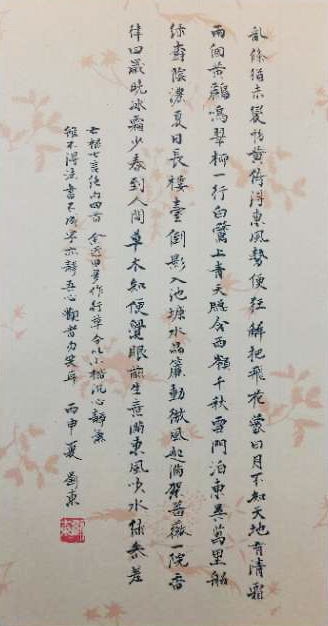 乱條猶未變初黄倚得東風勢便狂解把飛花蒙日月不知天地有清霜
兩個黄鸝鳴翠柳一行白鷺上青天窓含西嶺千秋雪門泊東吴萬里船
緑樹陰濃夏日長樓臺倒影入池塘水晶簾動微風起滿架薔薇一院香
律回歲晚冰霜少春到人間草木知便覺眼前生意滿東風吹水緑參差
七言绝句四首 余近日習作行草今以小楷沉心静氣
雖不得法書不成字亦静吾心觀者勿笑耳 丙申夏 劉東